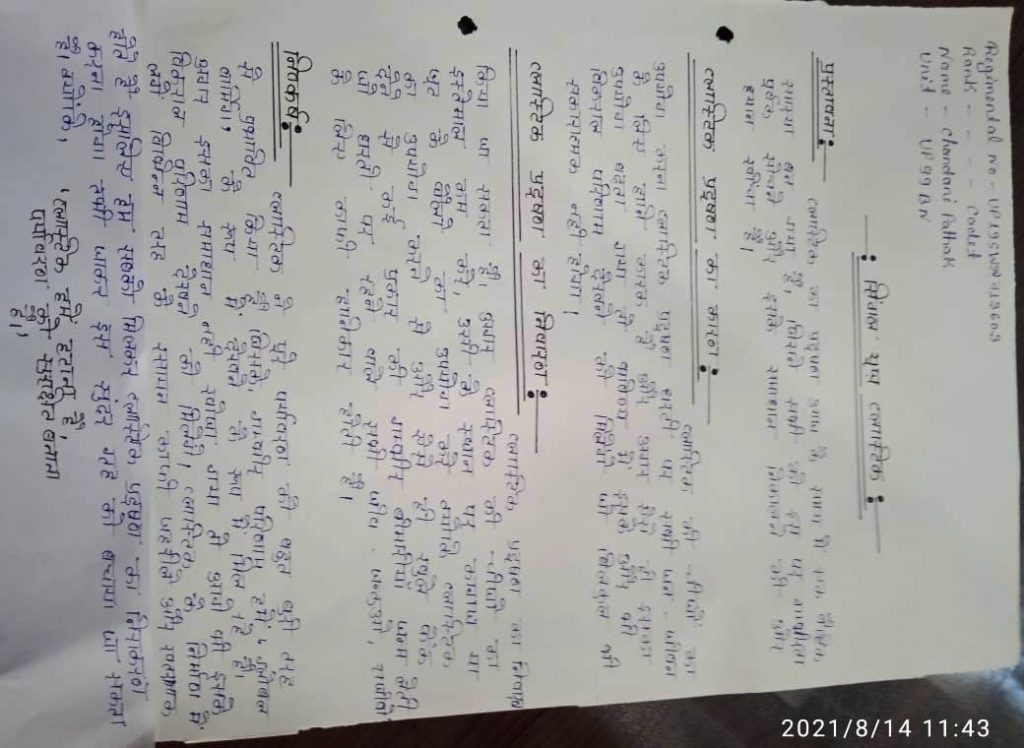 Regimental No - UP19SWN719603
Rank - - - Cadet
Name - chandani Pathak
Unit - UP99BN
: सिंगल यूज प्लास्टिक :
प्रस्तावना :
प्लास्टिक का प्रदूषण आज के समय में एक वैश्विक
समस्या बन गया है, जिसने सभी को इस पर गम्भीरता
पूर्वक सोचने और इसके समाधान निकालने की ओर
हमारा खींचा है।
प्लास्टिक प्रदूषण का कारण :
प्लास्टिक की चीजों का
उपयोग करना प्लास्टिक प्रदूषण धरती पर सभी जीव - जीवन
के लिए हानि कारक है और अगर ऐसे ही इसका
उपयोग बढ़ता गया तो भविष्य में इसके और भी
विकराल परिणाम देखने को मिलेंगे जो बिल्कुल भी
सकारात्मक नहीं होगा।
प्लास्टिक प्रदूषण का निवारण :
प्लास्टिक प्रदूषण का निवारण
किया जा सकता है। अगर प्लास्टिक की चीजों का
इस्तेमाल कम करे, उसी के स्थान पर कागज या
जूट के थैलो का उपयोग करे क्योंकि प्लास्टिक
का उपयोग करने से और ऐसे ही खुले फेंक
देने से कई प्रकार की गम्भीर बीमारियां जन्म लेती
जो धरती पर रहने वाले सभी जीव - जन्तुओं, सजीवों
के लिए काफी हानिकार होती है।
निष्कर्ष :
प्लास्टिक ने पूरे पर्यावरण को बहुत बुरी तरह
से प्रभावित किया है जिसके गम्भीर परिणाम हमें ग्लोबल
वार्मिंग, के रूप में देखने के रूप में मिल रहे है।
अगर इसका समाधान नही खोजा गया तो आगे भी इसके
विकराल परिणाम देखने को मिलेंगे। प्लास्टिक के निर्माण में
कई विभिन्न तरह के रसायन काफी जहरीले और खतरनाक
होते है इसलिए हम सबको मिलकर प्लास्टिक प्रदूषण का निराकरण
करना होगा तभी जाकर इस सुंदर ग्रह को बचाया जा सकता
है। क्योंकि,
'प्लास्टिक हमें हटाना है,
पर्यावरण को सुरक्षित बनाना
है।'
2021/8/14 11:43